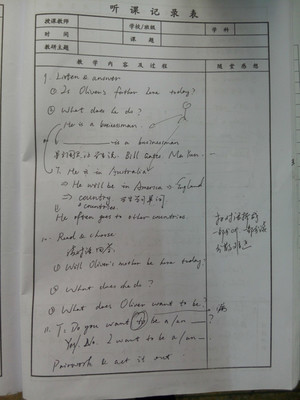 听课记录表
授课教师 学校/班级 学科
时间 课题
教研主题
教学内容及过程 随堂感想
1. Listen & answer
① Is Oliver's father here today?
② What does he do?
He is a businessman.
is a businessman
Bill Gates Ma Yun
T. He is in Australia
→ He will be in America → England
→ country
countries.
He often goes to other countries.
Read & choose
① Will Oliver's mother be here today?
② What does she do?
③ What does Oliver want to be?
T: Do you want to be a/an ?
Yes/No. I want to be a/an
Pairwork & act it out